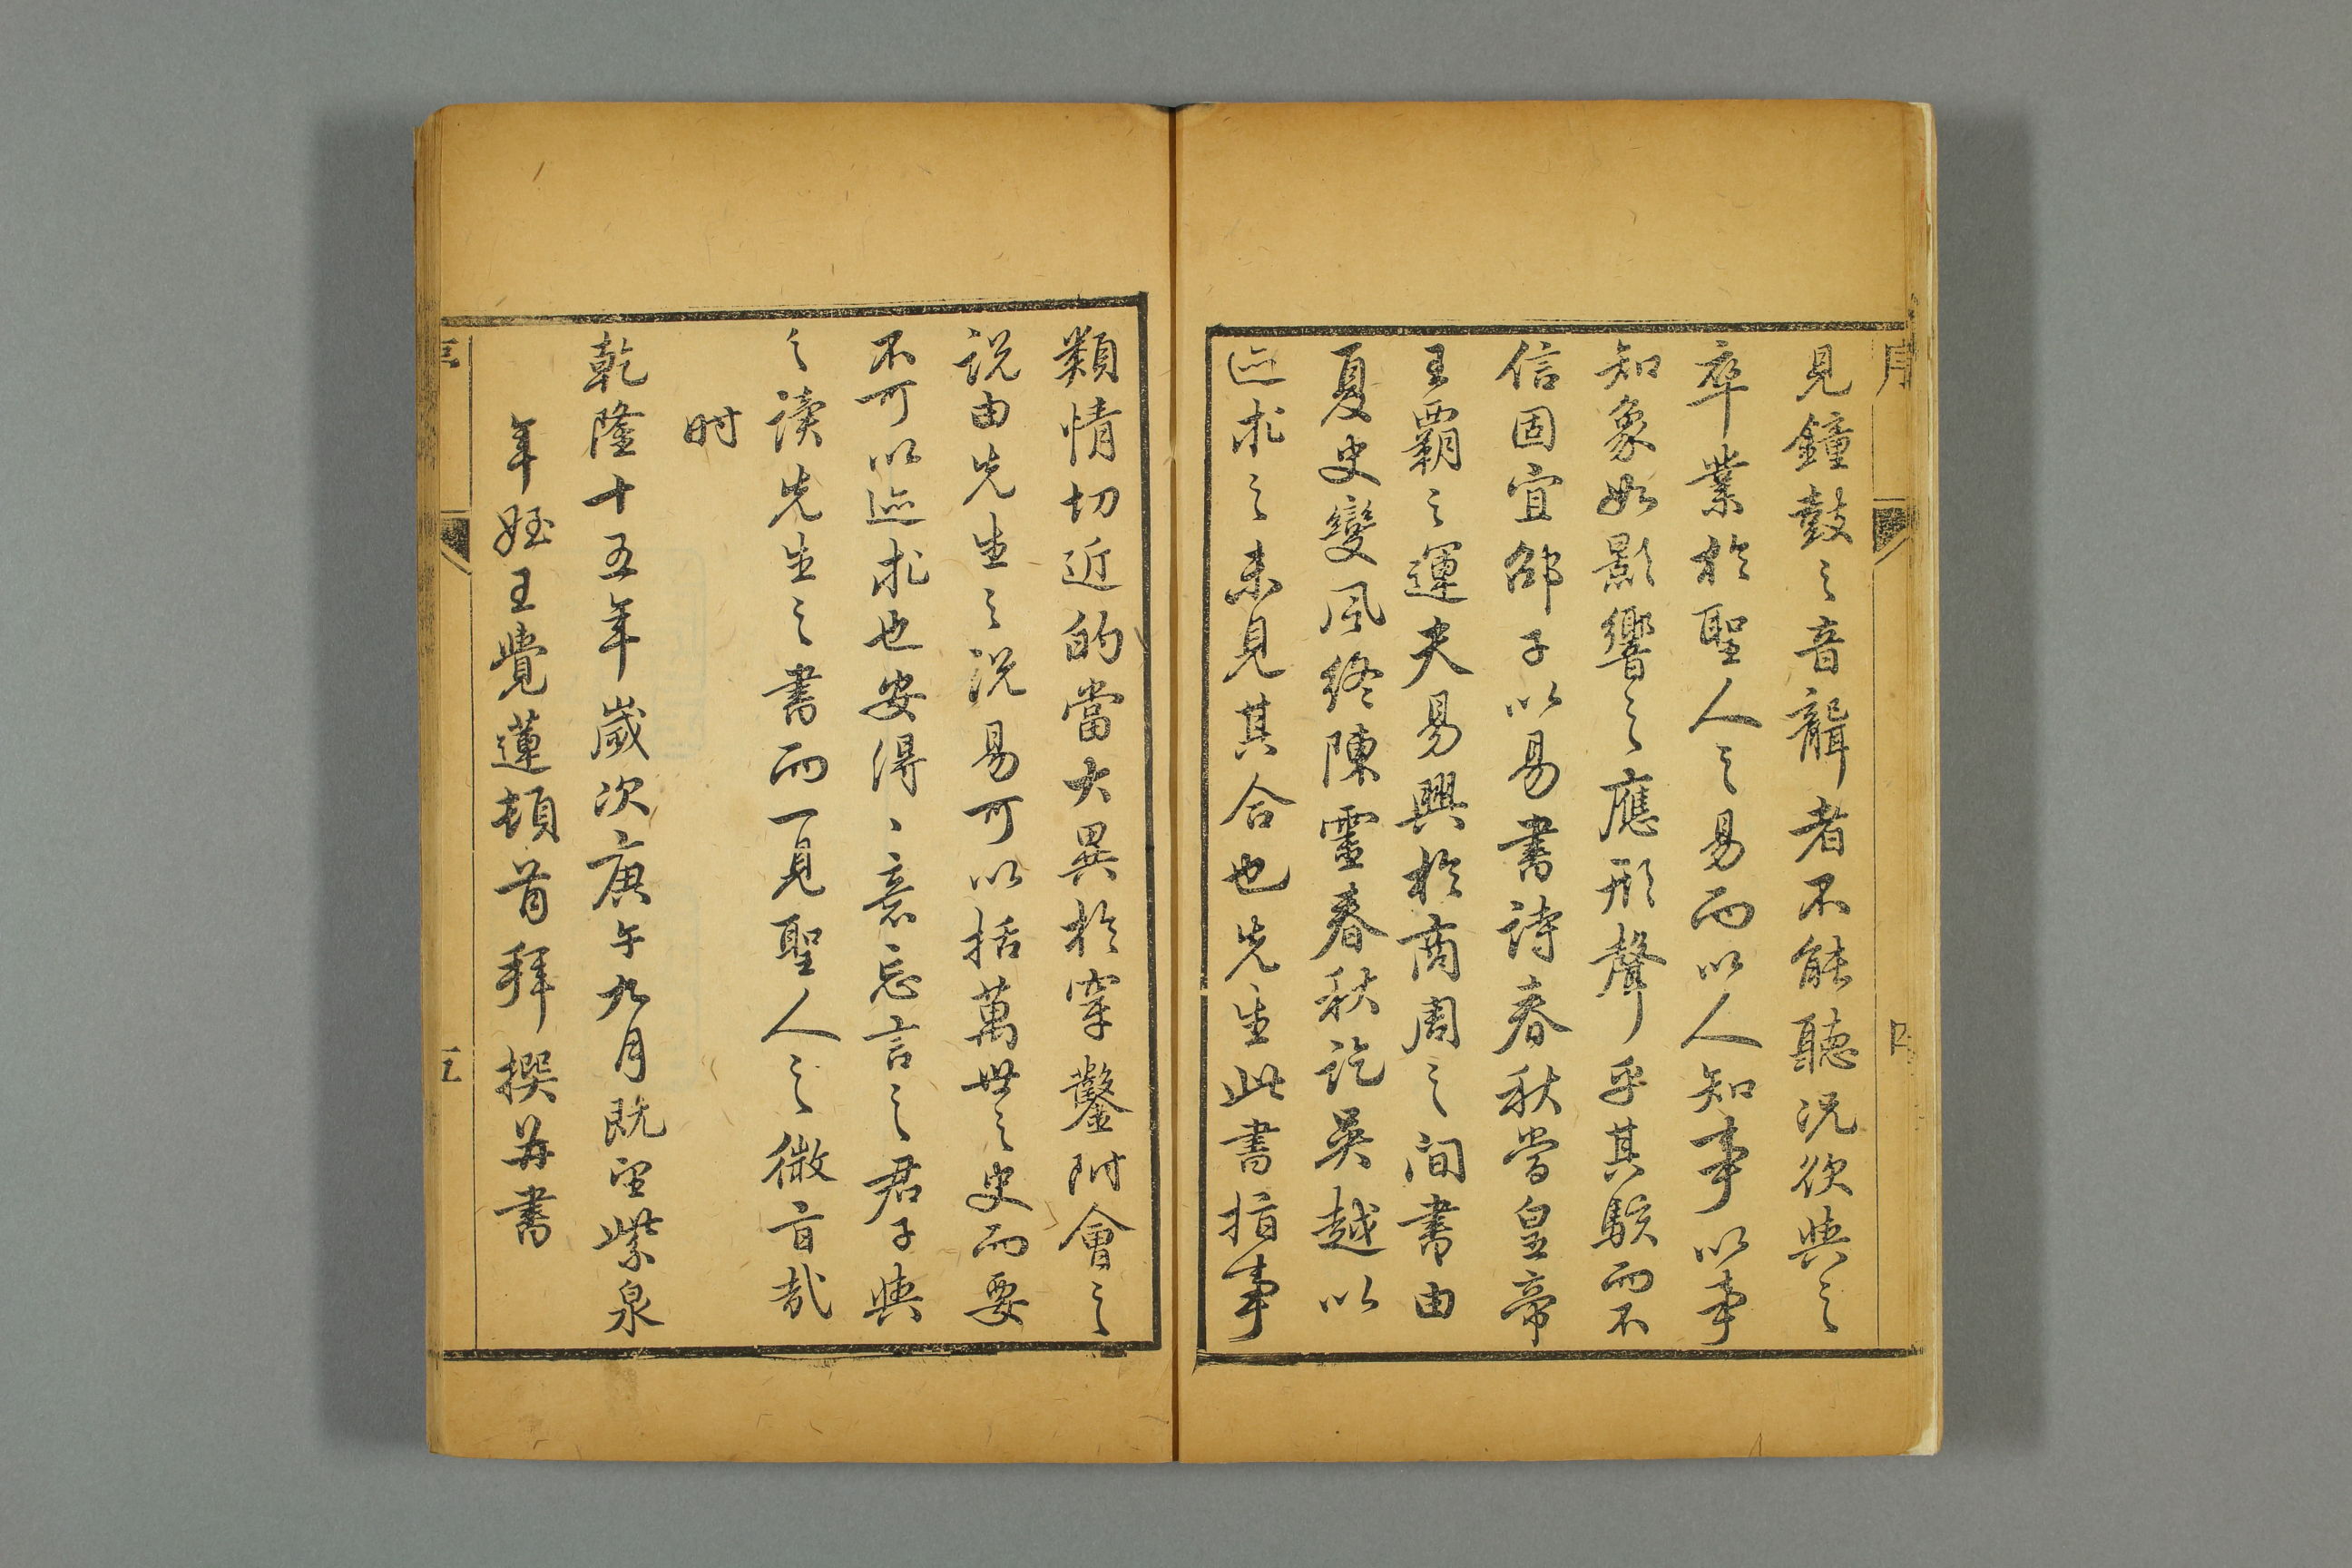 序
見鐘鼓之音聾者不能聽況欲與之
卒業於聖人之易而以人知事以事
知象如影響之應形聲乎其駭而不
信固宜邵子以易書詩春秋當皇帝
王霸之運夫易興於商周之間書由
夏史變風終陳靈春秋訖吳越以
迹求之未見其合也先生此書指事
類情切近的當大異於穿鑿附會之
説由先生之説易可以括萬世之史而要
不可以迹求也安得、意忘言之君子與
之讀先生之書而一見聖人之微旨哉
时
乾隆十五年歲次庚午九月既望紫泉
年姪王覺蓮頓首拜撰并書